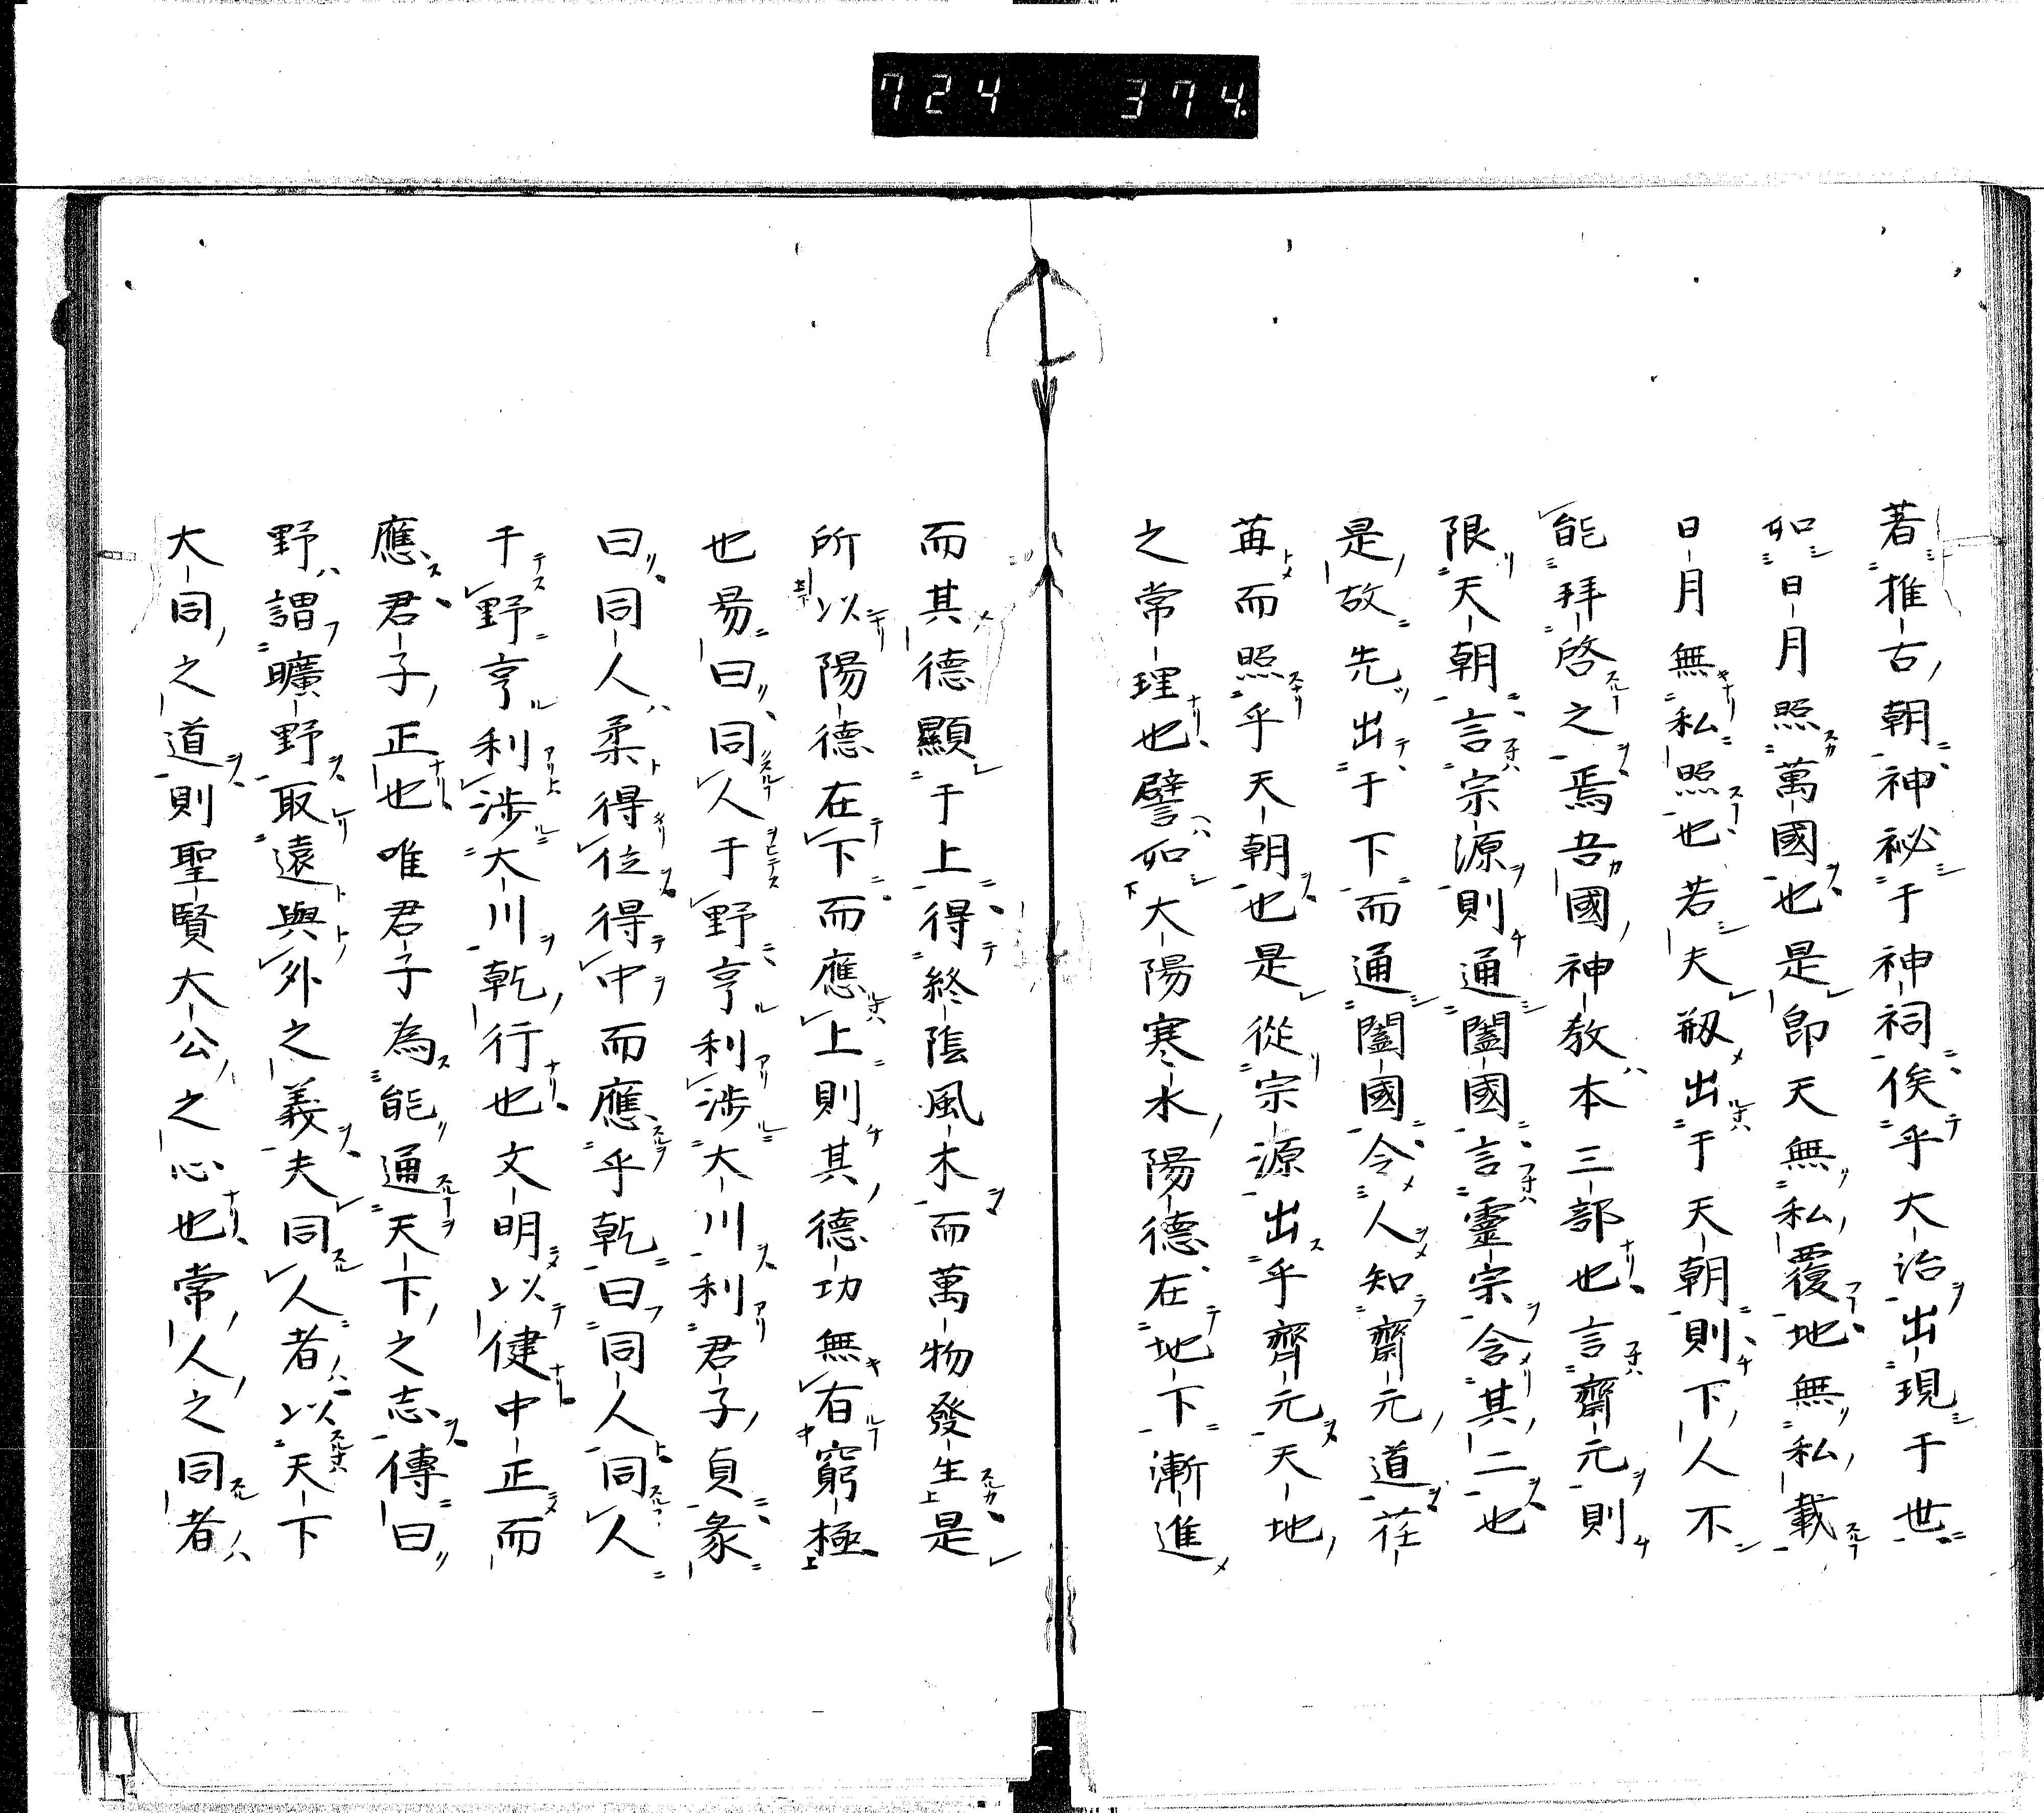 724 374
著推古朝神祕于神祠俟乎大治出現于世
如日月照萬國也是即天無私覆地無私載
日月無私照也若夫剏出于天朝則下人不
能拜啓之焉吾國神教本三部也言齋元則
限天朝言宗源則通闔國言靈宗含其二也
是故先出于下而通闔國令人知齋元道在
苒而照乎天朝也是從宗源出乎齊元天地
之常理也譬如大陽寒水陽德在地下漸進
而其德顯于上得終陰風木而萬物發生是
所以陽德在下而應上則其德功無有窮極
也易曰同人于野亨利涉大川利君子貞彖
曰同人柔得位得中而應乎乾曰同人同人
于野亨利涉大川乾行也文明以健中正而
應君子正也唯君子為能通天下之志傳曰
野謂曠野取遠與外之義夫同人者以天下
大同之道則聖賢大公之心也常人之同者